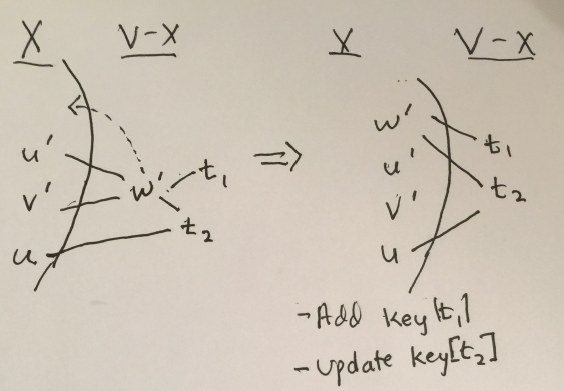 X V-X
u'
v'
u
w'
t₁
t₂
⇒
X V-X
w'
u'
v'
u
t₁
t₂
- Add key[t₁]
- update key[t₂]